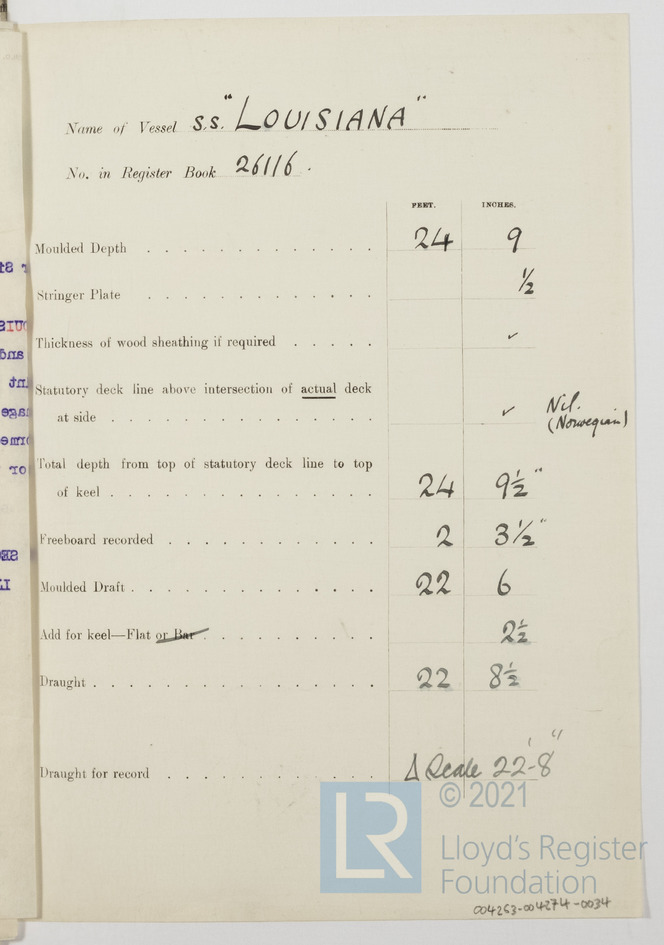 Name of Vessel s.s. "LOUISIANA"
No. in Register Book 26116.
FEET. INCHES.
Moulded Depth . . . . . . . . . . . . 24 9
Stringer Plate . . . . . . . . . . . . ½
Thickness of wood sheathing if required . . . . . ✓
Statutory deck line above intersection of actual deck
at side . . . . . . . . . . . . . . ✓ Nil.
(Norwegian)
Total depth from top of statutory deck line to top
of keel . . . . . . . . . . . . . . 24 9½"
Freeboard recorded . . . . . . . . . . . 2 3½"
Moulded Draft . . . . . . . . . . . . . 22 6
Add for keel—Flat or Bar . . . . . . . . . 2½
Draught . . . . . . . . . . . . . . . 22 8½
Draught for record . . . . . . . . . . . Δ Scale 22'-8"
LR
© 2021
Lloyd's Register
Foundation
004263-004274-0034